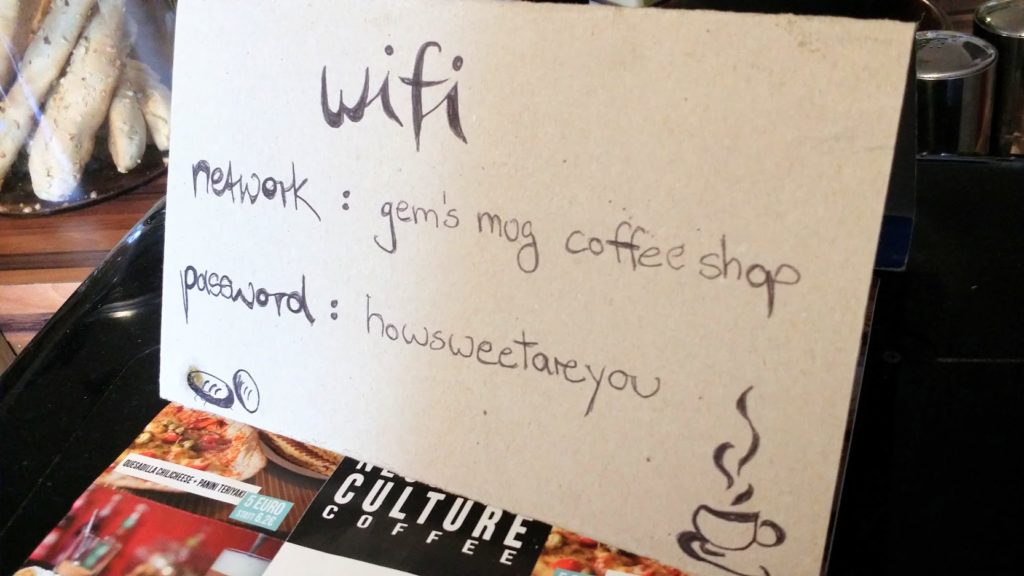 wifi
network : gem's mug coffee shop
password : howsweetareyou
QUESADILLA CHILICHEESE + PANINI TERIYAKI
5 EURO
CULTURE
COFFEE